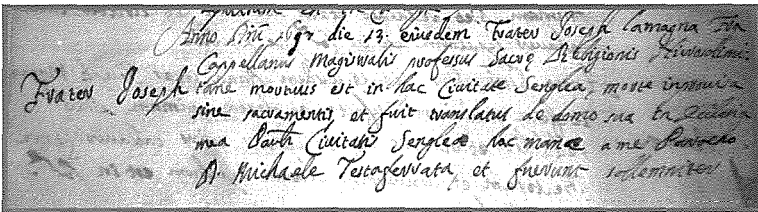 Anno Dni 1697 die 13. eiusdem Frater Joseph Camagna Fra
Cappellanus Magistralis professus Sacræ Religionis
Frater Joseph
tane mortuus est in hac Civitate Senglea, morte improvisa
sine sacramentis, et fuit translatus de domo sua in
mea Civitatis Sengleæ hac mane a me Parocho
D. Michaele Testaferrata et fuerunt sollemniter